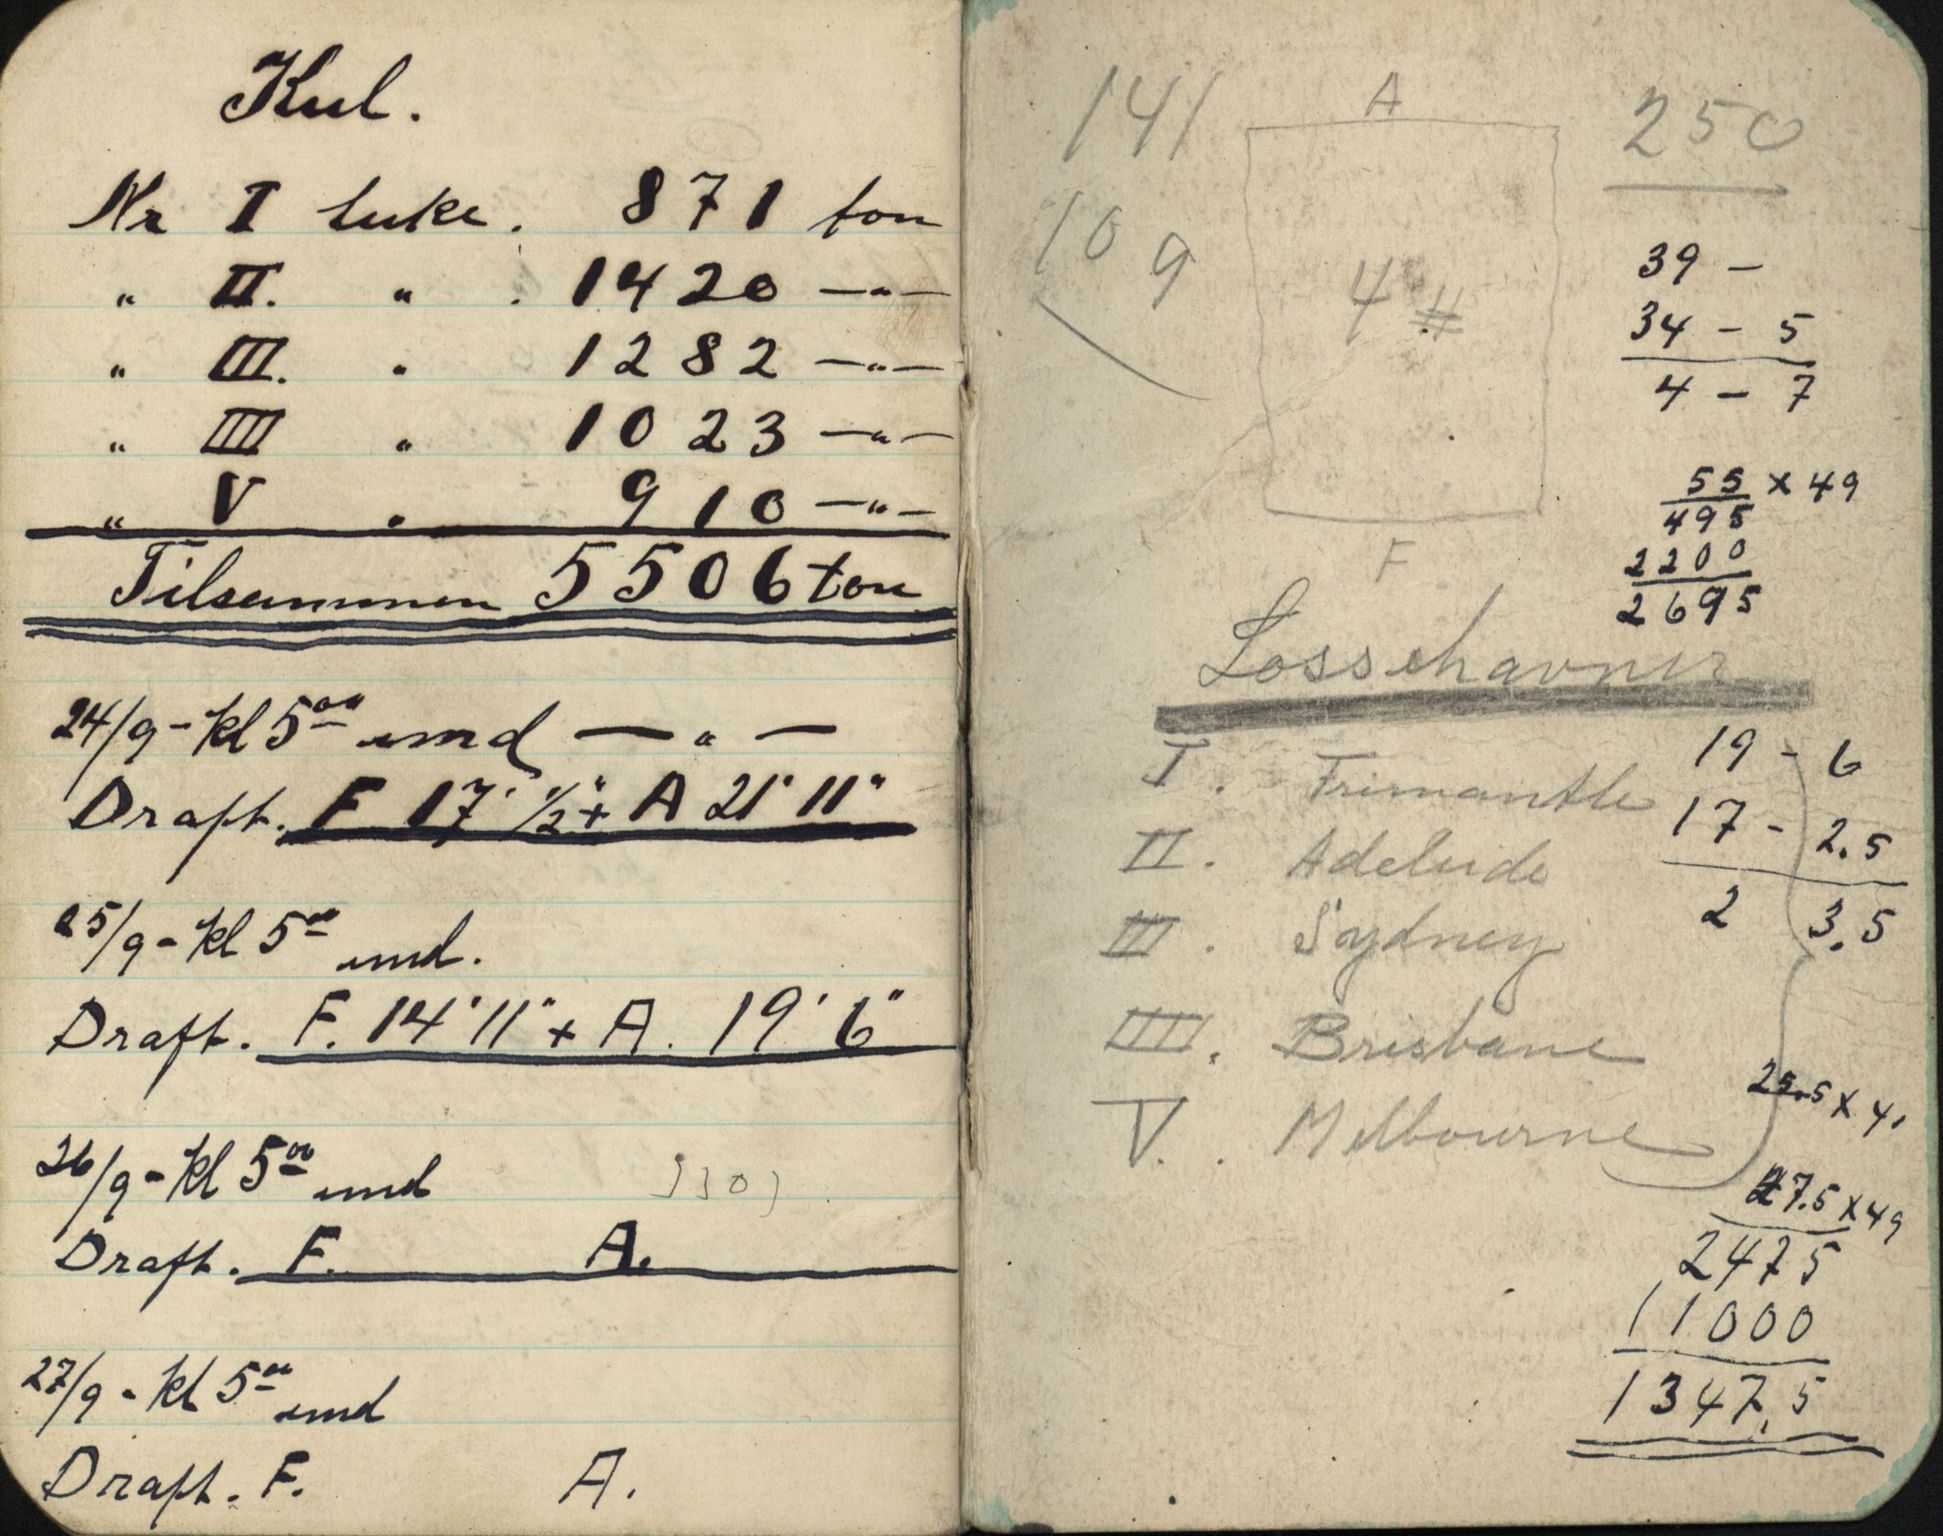 Kul.
Nr I luke. 871 ton
" II. " . 1420 —"—
" III. " 1282 —"—
" IIII " 1023 —"—
" V " 910 —"—
Tilsammen 5506 ton
24/9 - kl 5 00 emd — " —
Draft. F 17' 1/2" + A 21' 11"
25/9 - kl 5 00 emd.
Draft. F. 14' 11" + A. 19' 6"
26/9 - kl 5 00 emd
Draft. F. A.
27/9 - kl 5 00 emd
Draft. F. A.
141 A 250
109
4 #
F
39 -
34 - 5
4 - 7
55 x 49
495
2200
2695
Lossehavner
I. Frimantle
II. Adeleide
III. Sydney
IIII. Brisbane
V. Melbourne
19 - 6
17 - 2.5
2 3.5
25.5 x 4.
27.5 x 49
2475
11000
1347.5